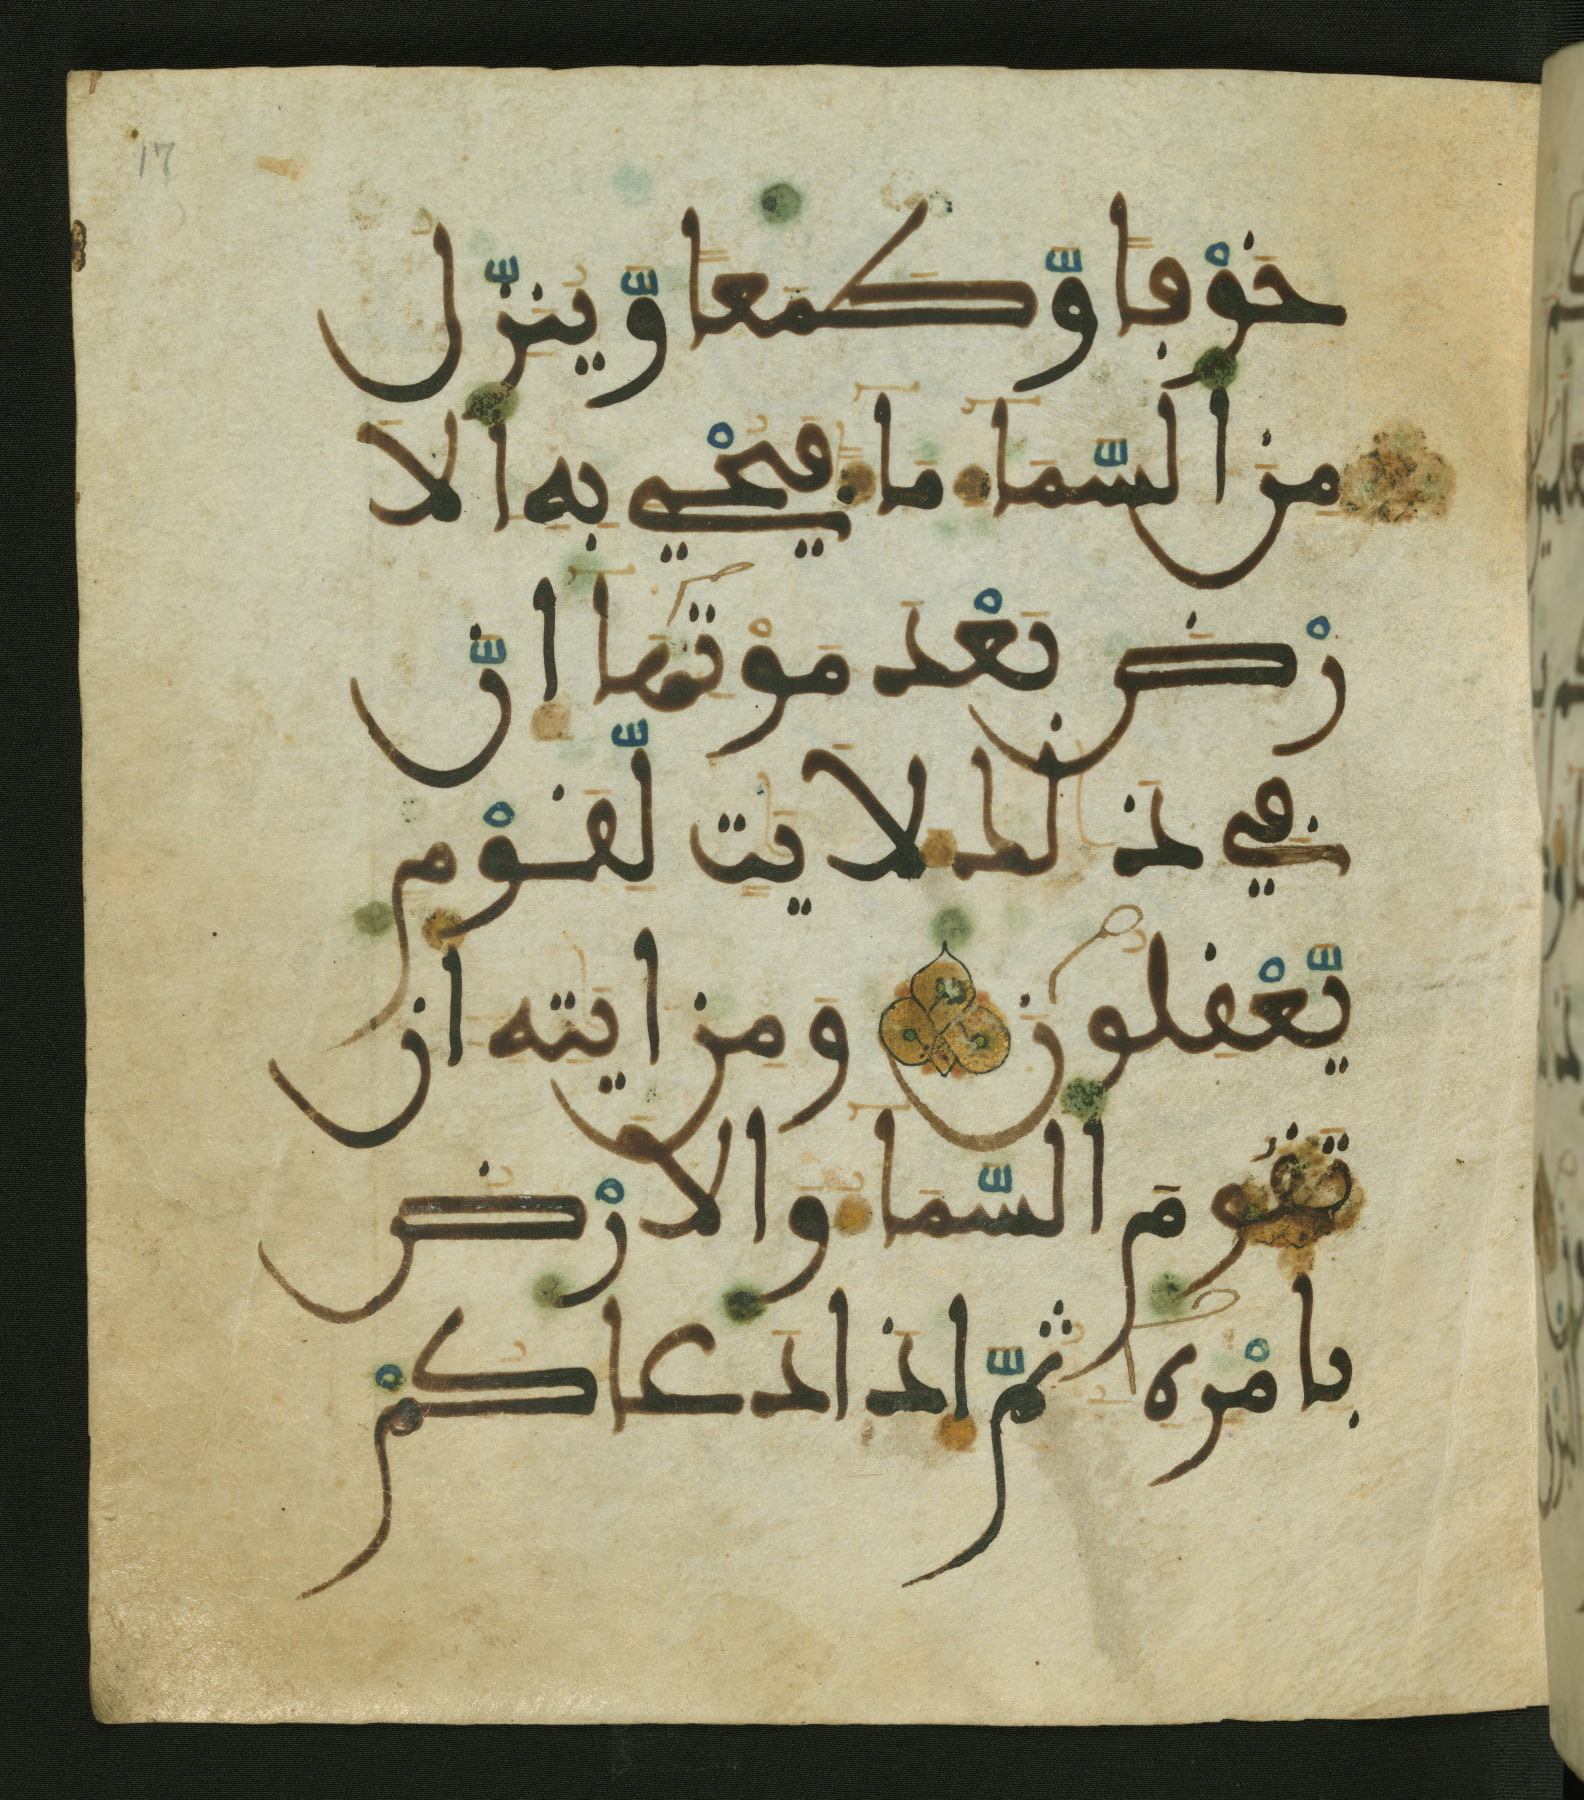 17
خَوْفًا وَّطَمَعًا وَّيُنَزِّلُ
مِنَ السَّمَآءِ مَآءً فَيُحْيِي بِهِ الَا
رْضَ بَعْدَ مَوْتِهَآ إِنَّ
فِي ذَٰلِكَ لَأَيَٰتٍ لِّقَوْمٍ
يَّعْقِلُونَ وَمِنَ ايَٰتِهِ أَن
تَقُومَ السَّمَآءُ وَالَارْضُ
بِأَمْرِهِ ثُمَّ إِذَا دَعَاكُمْ